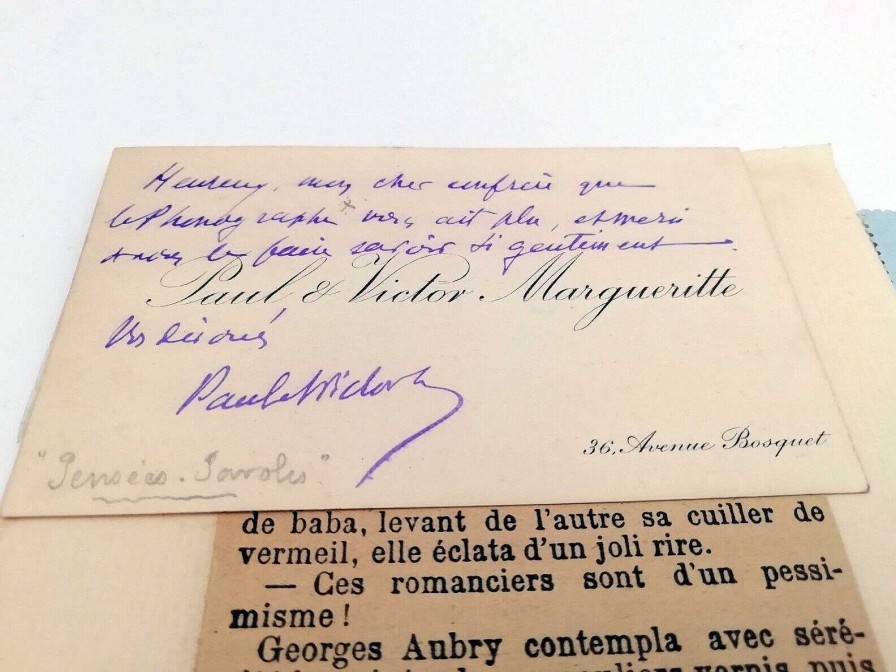 Heureux, mon cher confrère que
le Phonographe vous ait plu, et merci
de nous le faire savoir si gentiment.
Paul & Victor Margueritte
Vos dévoués
Paul et Victor
36, Avenue Bosquet
"Pensées. Paroles"
de baba, levant de l'autre sa cuiller de
vermeil, elle éclata d'un joli rire.
— Ces romanciers sont d'un pessi-
misme !
Georges Aubry contempla avec séré-
vernis puis